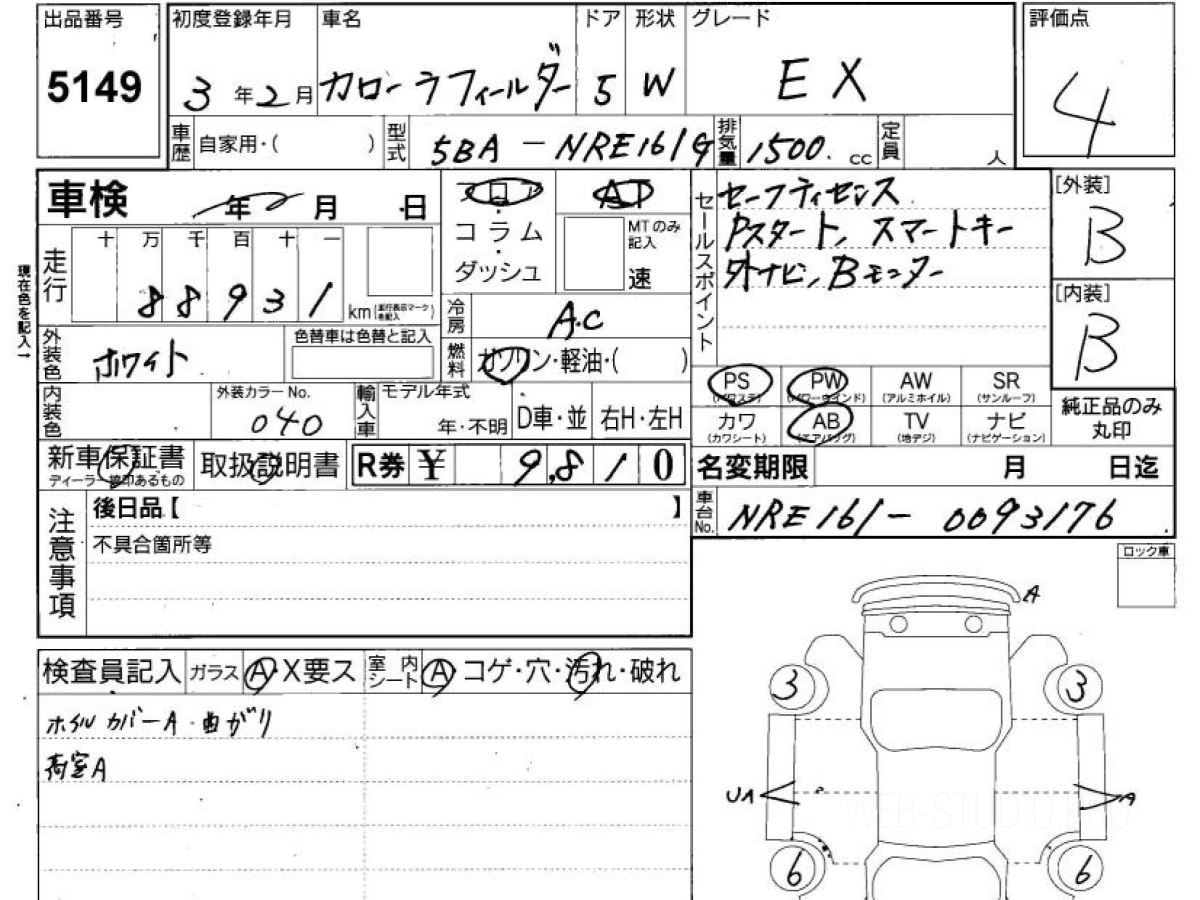 出品番号 初度登録年月 車名 ドア 形状 グレード 評価点
5149 3年2月 カローラフィールダー 5 W EX 4
車歴 自家用・( ) 型式 5BA-NRE161G 排気量 1500. cc 定員 人
車検 年 月 日
フロア・コラム・ダッシュ
AT
MTのみ記入
速
セールスポイント
セーフティセンス
Pスタート, スマートキー
外ナビ, Bモニター
[外装]
B
[内装]
B
現在色を記入→
走行 十 万 千 百 十 一
88931 km (走行表示マークを記入)
冷房 A.C
外装色 ホワイト 色替車は色替と記入
燃料 ガソリン・軽油・( )
内装色 外装カラーNo. 040 輸入車 モデル年式 年・不明 D車・並 右H・左H
PS (パワステ) PW (パワーウインド) AW (アルミホイル) SR (サンルーフ)
カワ (カワシート) AB (エアバッグ) TV (地デジ) ナビ (ナビゲーション)
純正品のみ丸印
新車保証書 ディーラー捺印あるもの 取扱説明書 R券 ¥ 9,810
名変期限 月 日迄
車台No. NRE161-0093176
注意事項
後日品【 】
不具合箇所等
ロック車
検査員記入 ガラス A・X要ス 室内シート A コゲ・穴・汚れ・破れ
ホイルカバーA・曲がり
荷室A
A
3 3
UA A
6 6
WEB-STUDIO PRO